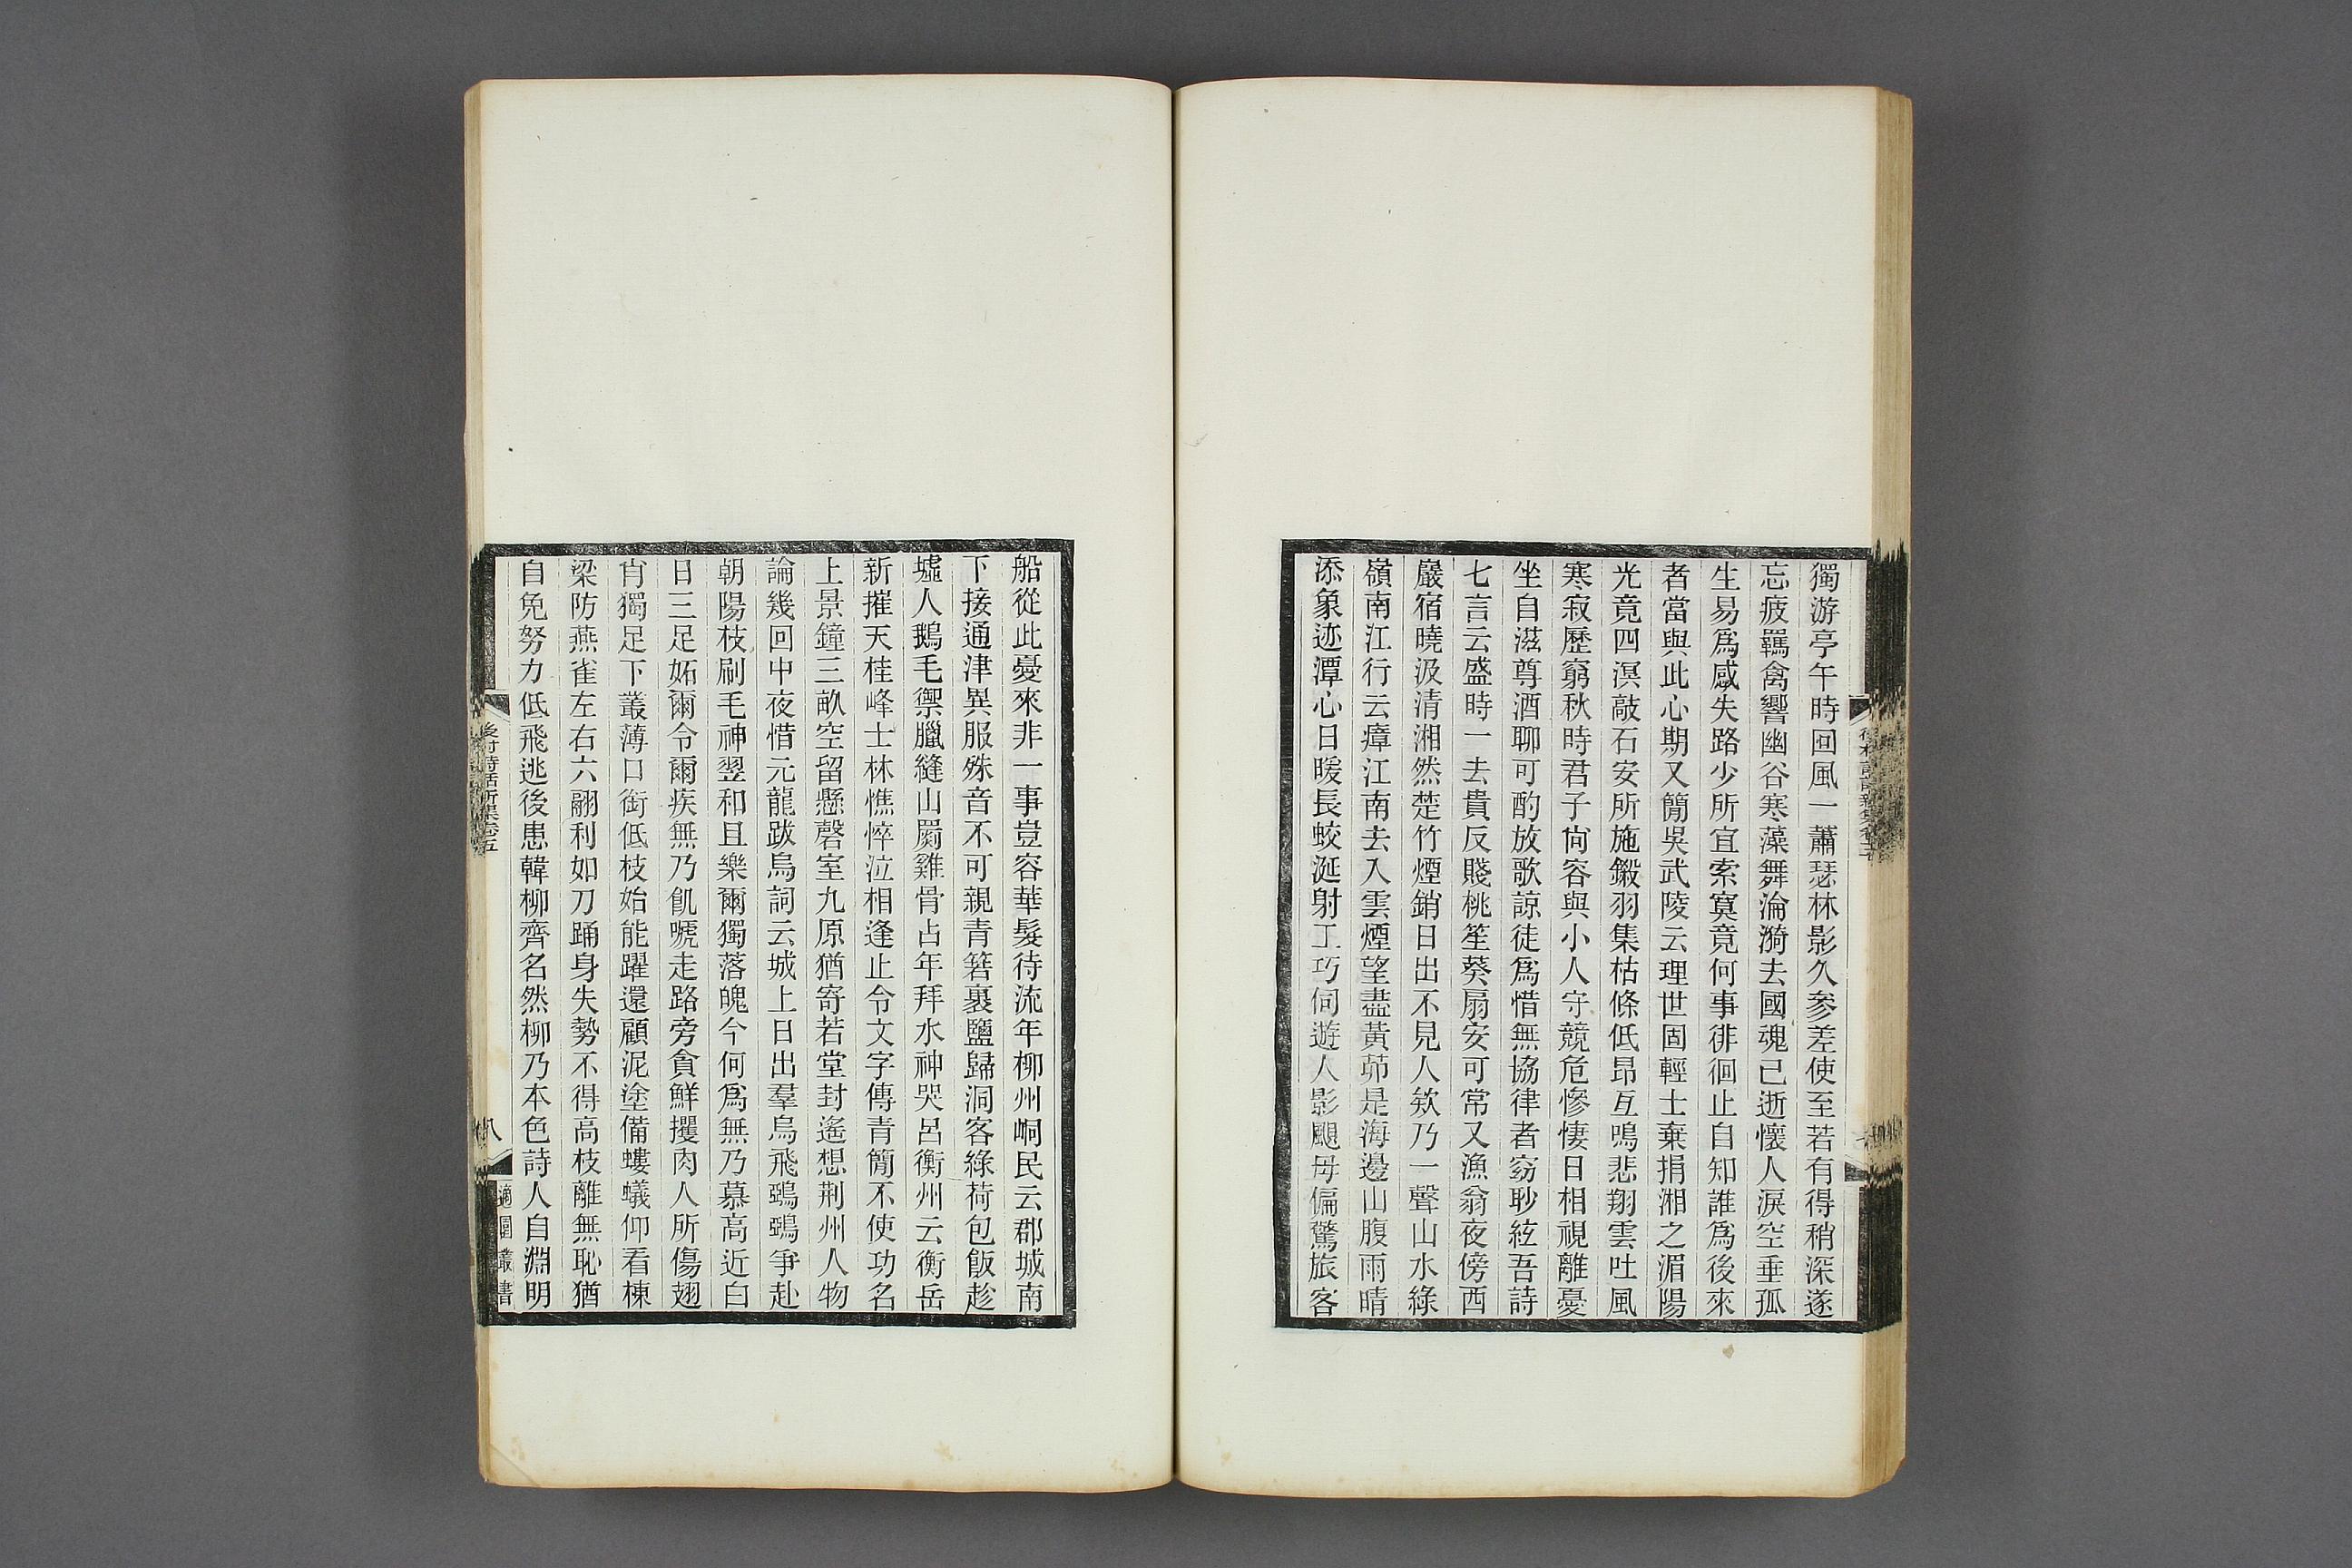 獨游亭午時回風一蕭瑟林影久參差使至若有得稍深遂
忘疲羈禽響幽谷寒藻舞淪漪去國魂已逝懷人淚空垂孤
生易爲感失路少所宜索寞竟何事徘徊止自知誰爲後來
者當與此心期又簡吳武陵云理世固輕士棄捐湘之湄陽
光竟四溟敲石安所施鎩羽集枯條低昂互鳴悲翔雲吐風
寒寂歷窮秋時君子尙容與小人守競危慘悽日相視離憂
坐自滋尊酒聊可酌放歌諒徒爲惜無協律者窈眇絃吾詩
七言云盛時一去貴反賤桃笙葵扇安可常又漁翁夜傍西
巖宿曉汲清湘然楚竹煙銷日出不見人欸乃一聲山水綠
嶺南江行云瘴江南去入雲煙望盡黃茆是海邊山腹雨晴
添象迹潭心日暖長蛟涎射工巧伺遊人影颶母偏驚旅客
船從此憂來非一事豈容華髮待流年柳州峒民云郡城南
下接通津異服殊音不可親青箬裹鹽歸洞客綠荷包飯趁
墟人鵝毛禦臘縫山罽雞骨占年拜水神哭呂衡州云衡岳
新摧天桂峰士林憔悴泣相逢止令文字傳青簡不使功名
上景鐘三畝空留懸磬室九原猶寄若堂封遙想荆州人物
論幾回中夜惜元龍跋烏詞云城上日出羣烏飛鵶鵶爭赴
朝陽枝刷毛神翌和且樂爾獨落魄今何爲無乃慕高近白
日三足妬爾令爾疾無乃飢嗁走路旁貪鮮攫肉人所傷翅
肖獨足下叢薄口銜低枝始能躍還顧泥塗備螻蟻仰看棟
梁防燕雀左右六翮利如刀踊身失勢不得高枝離無恥猶
自免努力低飛逃後患韓柳齊名然柳乃本色詩人自淵明
後村詩話新集卷五
八
適園叢書